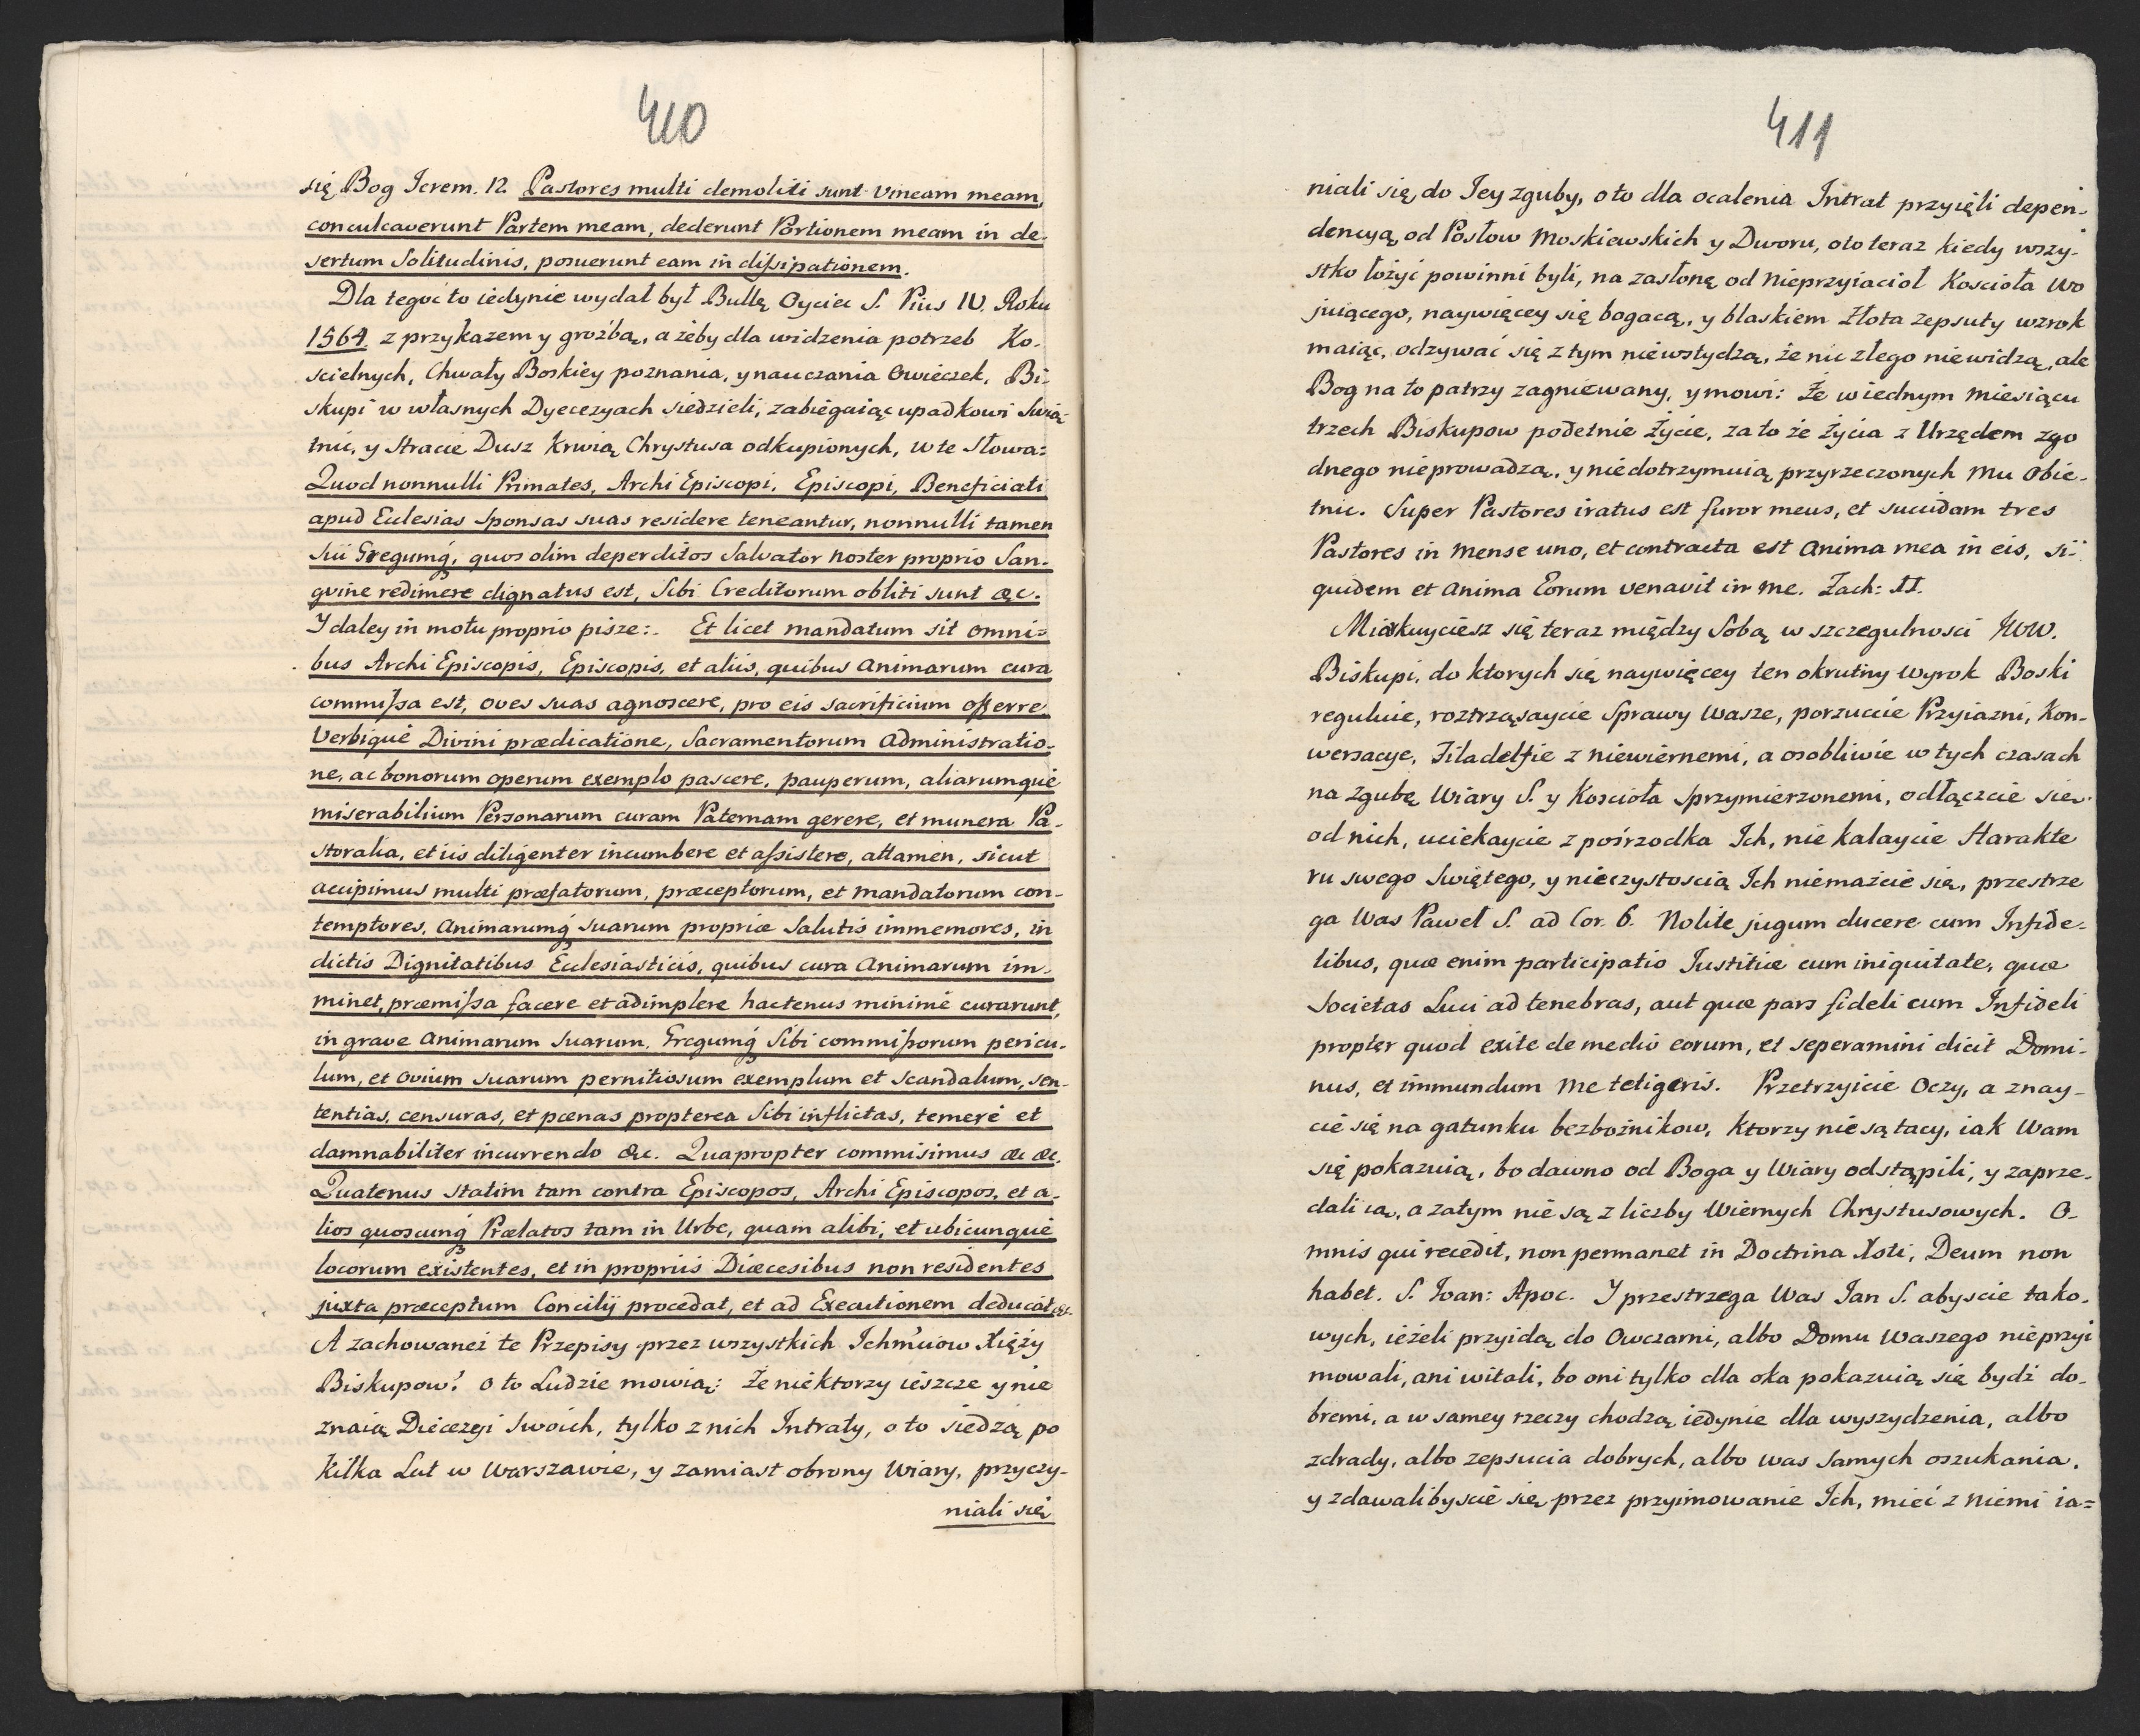 410
się Bog Jerem. 12. Pastores multi demoliti sunt vineam meam,
conculcaverunt Partem meam, dederunt Portionem meam in de-
sertum Solitudinis, posuerunt eam in dissipationem.
Dla tegoć to iedynie wydał był Bullę Oyciec S. Pius IV. Roku
1564. z przykazem y groźbą, ażeby dla widzenia potrzeb Ko-
scielnych, Chwały Boskiey poznania, y nauczania Owieczek, Bi-
skupi w własnych Dyecezyach siedzieli, zabiegaiąc upadkowi Swią-
tnic, y Stracie Dusz Krwią Chrystusa odkupionych, w te Słowa:
Quod nonnulli Primates, Archi Episcopi, Episcopi, Beneficiati
apud Ecclesias Sponsas suas residere teneantur, nonnulli tamen
Sui Gregumq́, quos olim deperditos Salvator noster proprio San-
gvine redimere dignatus est, Sibi Creditorum obliti sunt &c.
Y daley in motu proprio pisze:. Et licet mandatum sit omni-
bus Archi Episcopis, Episcopis, et aliis, quibus animarum cura
commissa est, oves suas agnoscere, pro eis sacrificium offerre,
Verbique Divini prædicatione, Sacramentorum administratio-
ne, ac bonorum operum exemplo pascere, pauperum, aliarumque
miserabilium Personarum curam Paternam gerere, et munera Pa-
storalia, et iis diligenter incumbere et assistere, attamen, sicut
accipimus multi præfatorum, præceptorum, et mandatorum con-
temptores, Animarumq́ suarum propriæ Salutis immemores, in
dictis Dignitatibus Ecclesiasticis, quibus cura Animarum im-
minet, præmissa facere et adimplere hactenus minime curarunt,
in grave animarum Suarum, Gregumq́ Sibi commissorum pericu-
lum, et ovium suarum pernitiosum exemplum et scandalum, sen-
tentias, censuras, et pœnas propterea Sibi inflictas, temerè et
damnabiliter incurrendo &c. Quapropter commisimus &c &c.
Quatenus statim tam contra Episcopos, Archi Episcopos, et a-
lios quoscunq́ Prælatos tam in Urbe, quam alibi, et ubicunque
locorum existentes, et in propriis Diœcesibus non residentes
juxta præceptum Concilij procedat, et ad Executionem deducat &c.
A zachowaneż te Przepisy przez wszystkich Ichm'ciow Xięży
Biskupow? oto Ludzie mowią: że niektorzy ieszcze y nie
znaią Diecezyi Swoich, tylko z nich Intraty, oto siedzą po
kilka Lat w Warszawie, y zamiast obrony Wiary, przyczy-
niali się
411
niali się do Jey zguby, oto dla ocalenia Intrat przyięli depen-
dencyą od Posłow Moskiewskich y Dworu, oto teraz kiedy wszy-
stko łożyć powinni byli, na zasłonę od Nieprzyiacioł Koscioła Wo
juiącego, naywięcey się bogacą, y blaskiem Złota zepsuty wzrok
maiąc, odzywać się z tym niewstydzą, że nic złego nie widzą, ale
Bog na to patrzy zagniewany, y mowi: Że w iednym miesiącu
trzech Biskupow podetnie życie, za to że życia z Urzędem zgo
dnego nieprowadzą, y niedotrzymuią przyrzeczonych mu Obie-
tnic. Super Pastores iratus est furor meus, et succidam tres
Pastores in mense uno, et contracta est anima mea in eis, si-
quidem et anima Eorum venavit in me. Zach: II.
Miarkuyciesz się teraz między Sobą w szczegulnosci JWW.
Biskupi, do ktorych się naywięcey ten okrutny Wyrok Boski
reguluie, roztrząsaycie Sprawy Wasze, porzuccie Przyiazni, Kon-
wersacye, Filadelfie z niewiernemi, a osobliwie w tych czasach
na zgubę Wiary S. y Koscioła sprzymierzonemi, odłączcie się
od nich, uciekaycie z pośrzodka Ich, nie kalaycie Harakte
ru swego Swiętego, y nieczystoscią Ich niemażcie się, przestrze
ga Was Paweł S. ad Cor. 6. Nolite jugum ducere cum Infide-
libus, quæ enim participatio Justitiæ cum iniquitate, quæ
Societas Luci ad tenebras, aut quæ pars fideli cum Infideli
propter quod exite de medio eorum, et seperamini dicit Domi-
nus, et immundum me tetigeris. Przetrzyicie Oczy, a znay-
cie się na gatunku bezbożnikow, ktorzy nie są tacy, iak Wam
się pokazuią, bo dawno od Boga y Wiary odstąpili, y zaprze-
dali ią, a zatym nie są z liczby Wiernych Chrystusowych. O-
mnis qui recedit, non permanet in Doctrina Xsti, Deum non
habet. S. Joan: Apoc. Y przestrzega Was Jan S. abyscie tako-
wych, ieżeli przyidą do Owczarni, albo Domu Waszego nieprzyi
mowali, ani witali, bo oni tylko dla oka pokazuią się bydź do-
bremi, a w samey rzeczy chodzą iedynie dla wyszydzenia, albo
zdrady, albo zepsucia dobrych, albo was samych oszukania,
y zdawalibyscie się przez przyimowanie Ich, mieć z niemi ia=